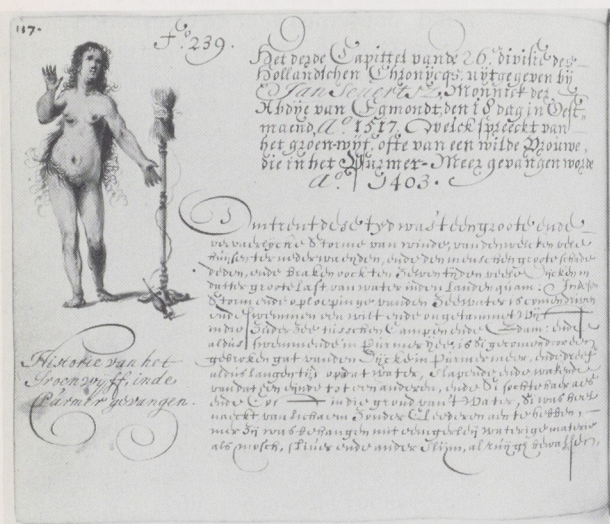 117.
Fo. 239.
Het derde Capittel vande 26. divisie des
Hollandschen Chronycqs, uytgegeven bij
Jan Severts Z. Monnick der
Abdye van Egmondt, den 18 dag in Oest
maend, Ao. 1517. Welck spreeckt van
het groen-wyf, ofte van een wilde Vrouwe,
die in het Purmer-Meer gevangen worde
Ao. 1403.
Omtrent dese tyd was t een groote ende
vervaerlycke Storme van winde, van den welcken vele
huysen ter neder waeyden, ende den menschen groote schade
deden, ende braken oock ten selven tijden veele Dijcken in
datter groote last van water inden Landen quam: In desen
Storm ende oploepinge vanden Zeewater is comen driven
ende swemmen een wilt ende ongetammet Wyf
in die Zuder Zee tusschen Campen ende Edam: ende
aldus swemmende in Purmer Zee, is si gecomen door een
gebroken gat vanden Dijcke in Purmer meer, ende dreef
aldus langen tijt op dat water, slapende ende wakende
vandat een eynde tot een anderen, ende Si sochte haer aes
ende Cost in die grond van t Water, Si was heel
naeckt van lichaem Zonder Cleederen aen te hebben,
mer Si was behangen mit eenigerley waterige materie
als mosch, slijver ende ander slijm, al ruyg bewassen,
Historie van het
Groenwyff, in de
Parmer gevangen.